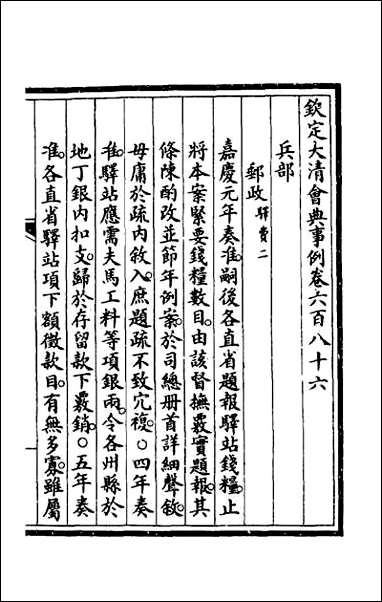 欽定大清會典事例卷六百八十六
兵部
郵政驛費二
嘉慶元年奏准嗣後各直省題報驛站錢糧止
將本案緊要錢糧數目由該督撫覈實題報其
條陳酌改並節年例案於司總册首詳細聲敘
毋庸於疏内敘入庶題疏不致宂複○四年奏
准驛站應需夫馬工料等項銀兩令各州縣於
地丁銀内扣支歸於存留款下覈銷○五年奏
准各直省驛站項下額徵款目有無多寡雖屬